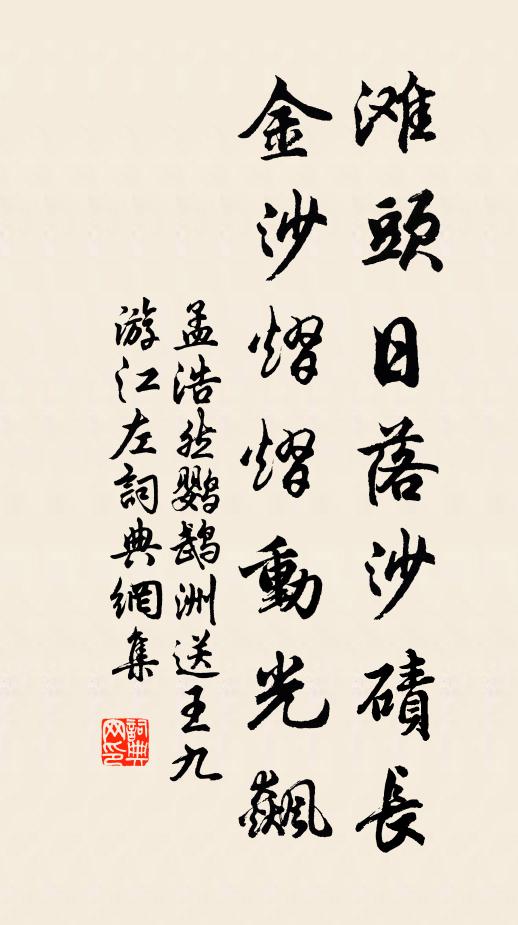 滩頭日落沙磧長
金沙熠熠動光飆
孟浩然鸚鵡洲送王九
游江左詞典網集
詞典
网印